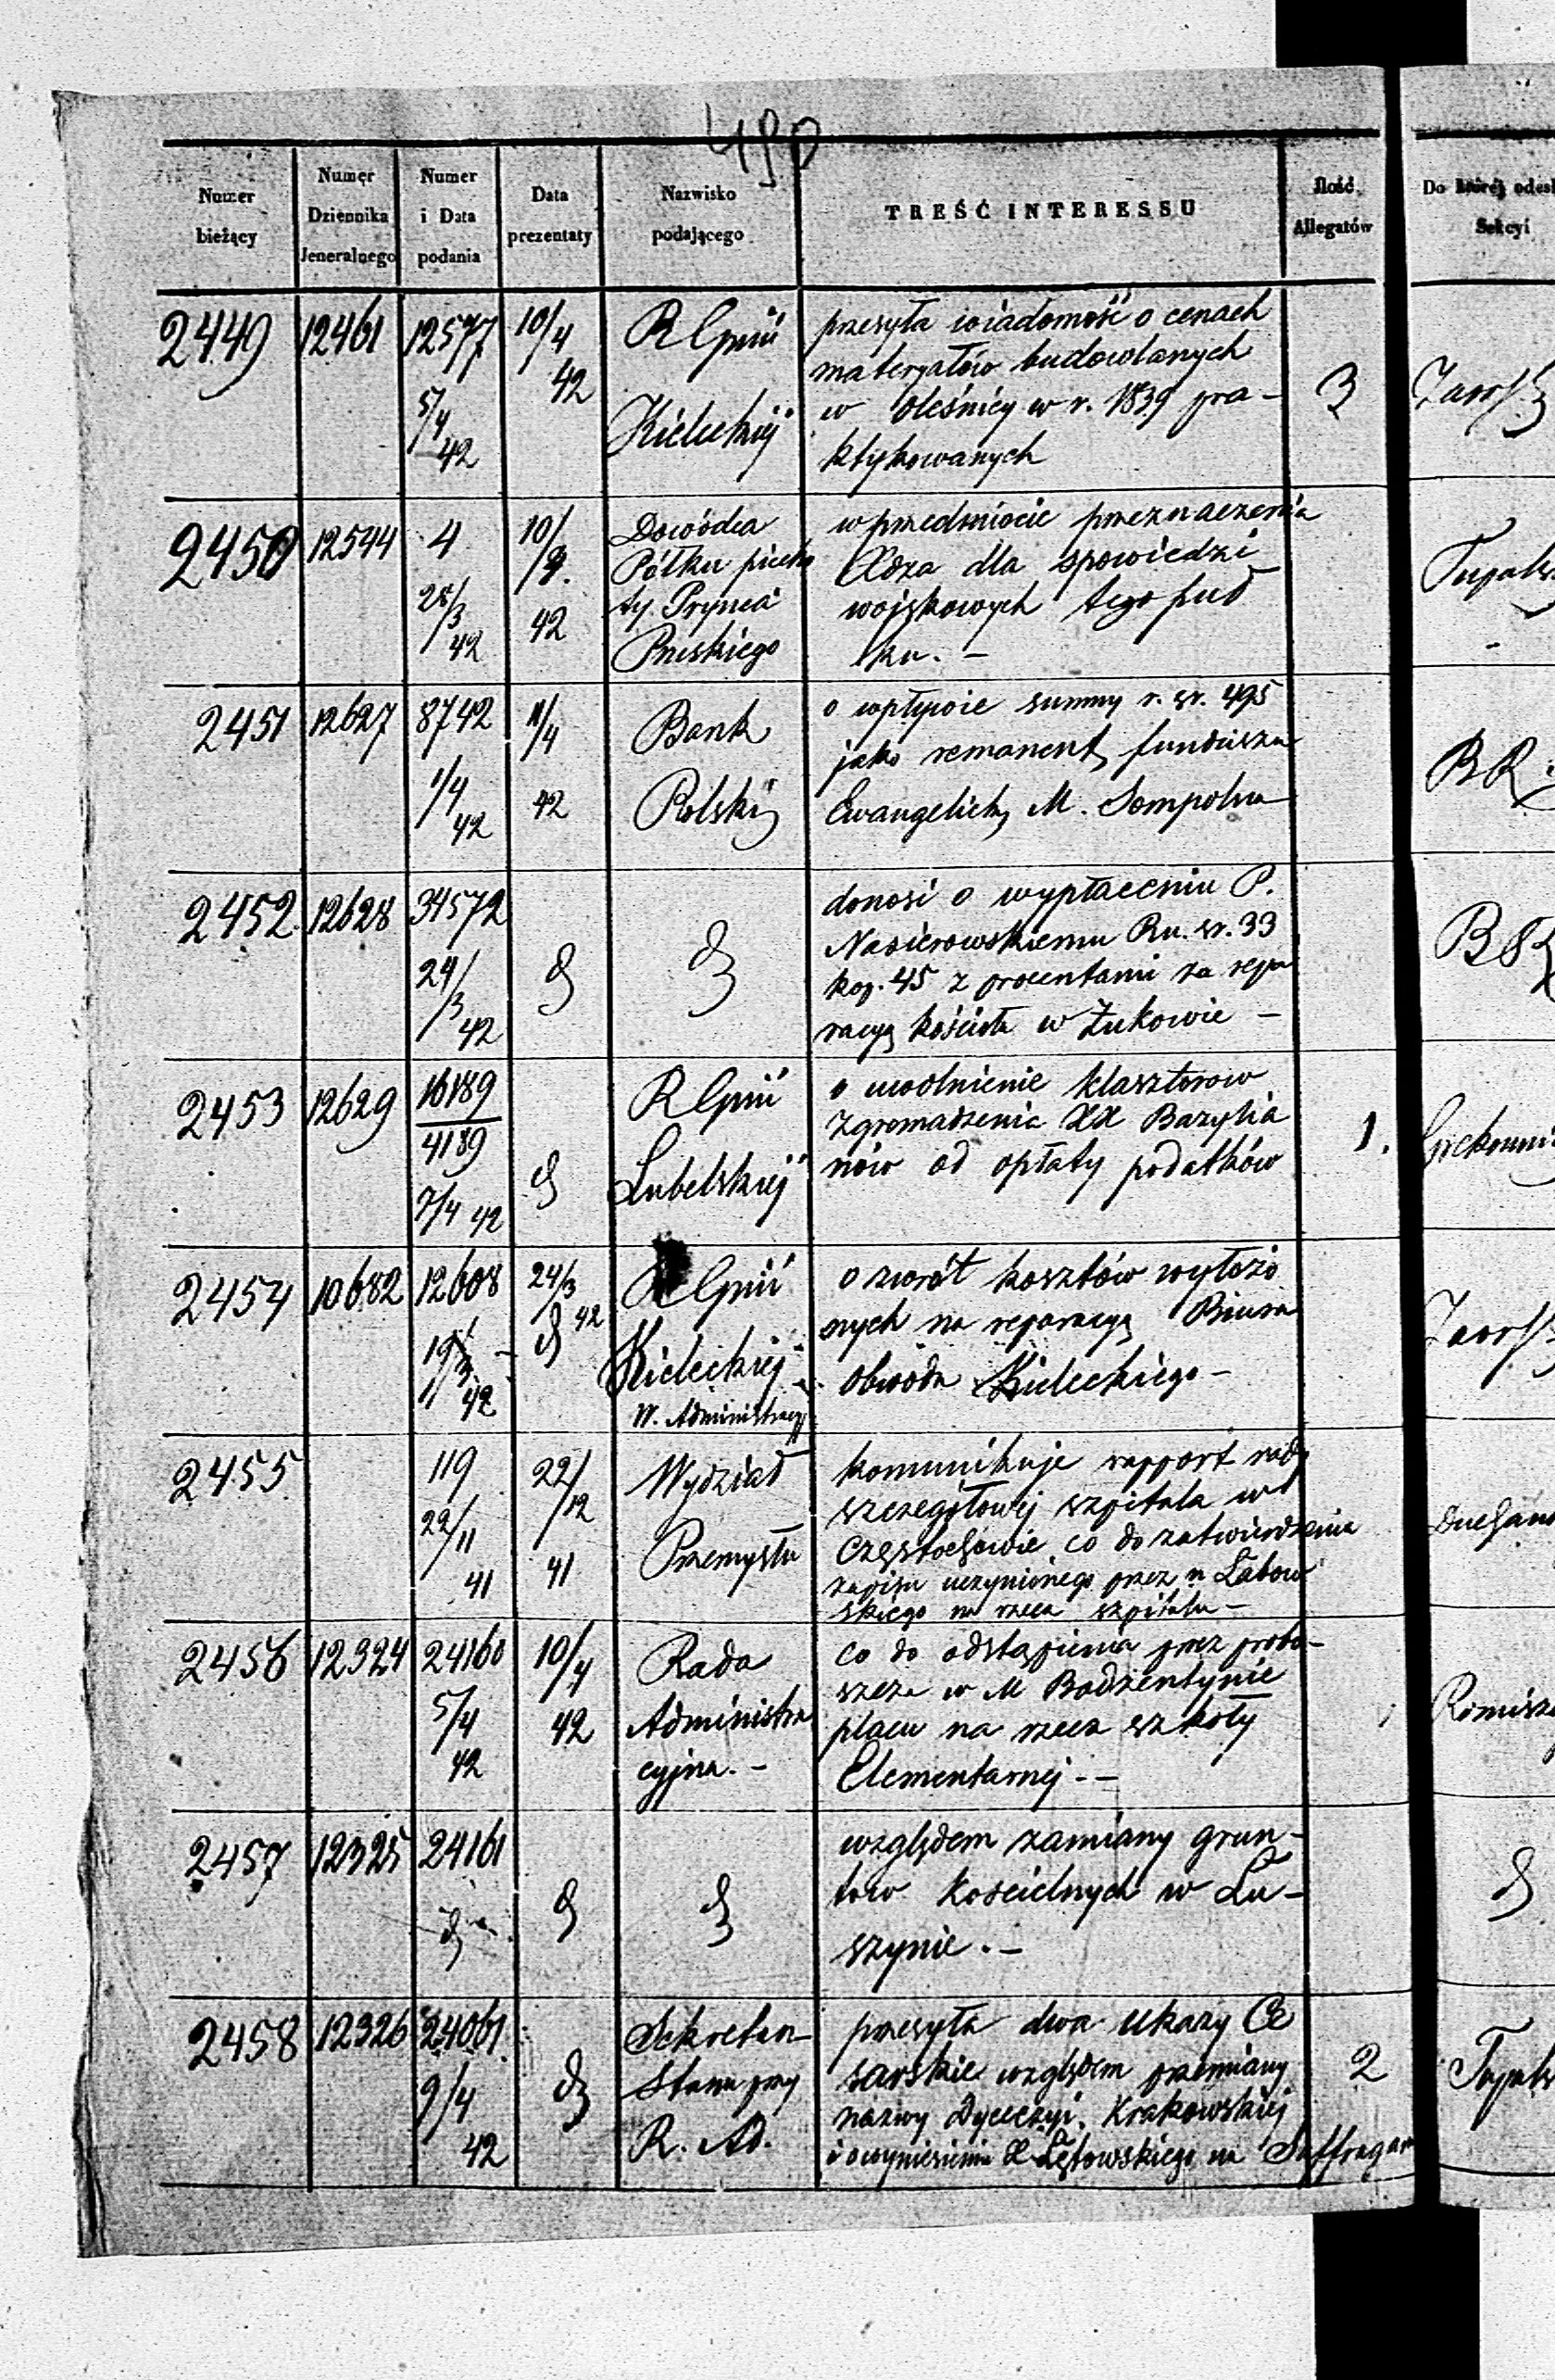 490
Numer bieżący
Numer Dziennika Jeneralnego
Numer i Data podania
Data prezentaty
Nazwisko podającego
TREŚĆ INTERESSU
Ilość Allegatów
Do której odesł
Sekcyi
2449 12461 12577 5/4 42 10/4 42
R Gpnii
Kieleckiej
przesyła wiadomość o cenach
materyałów budowlanych
w Oleśnicy w r. 1839 pra-
ktykowanych
3
2450 12544 4 28/3 42 10/4. 42
Dowódca
Półku piecho
ty Prynca
Pruskiego
w przedmiocie przeznaczenia
Xdza dla spowiedzi
wojskowych tego puł
ku. -
2451 12627 8742 1/4 42 11/4 42
Bank
Polski
o wpływie summy r. sr. 495
jako remanent funduszu
Ewangelick M. Sompolna
BR
2452 12628 34572 24/3 42 d d
donosi o wypłaceniu P.
Nasierowskiemu Ru. sr. 33
kop. 45 z procentami za repa
racyą kościoła w Żukowie -
2453 12629 16189/4189 7/4 42 d
R Gpnii
Lubelskiej
o uwolnienie klasztorow
Zgromadzenia XX Bazylia
nów od opłaty podatków
1.
2454 10682 12608 19/3 42 24/3 42 d
R Gpnii
Kieleckiej
W. Administracyj
o zwrót kosztów wyłożo
nych na reparacyą Biura
obwodu Kieleckiego -
2455 119 22/11 41 22/12 41
Wydział
Przemysłu
komunikuje rapport rady
szczegółowej szpitala w
Częstochowie co do zatwierdzenia
zapisu uczynionego przez n Łabow
skiego na rzecz szpitala -
2456 12324 24160 5/4 42 10/4 42
Rada
Administra
cyjna. -
co do odstąpienia przez probo-
szcza w M Bodzentynie
placu na rzecz szkoły
Elementarnej. -
2457 12325 24161 d d d
względem zamiany grun-
tow Kościelnych w Łu-
szynie. -
d
2458 12326 24061 9/4 42 d
Sekretarz
Stanu przy
R. Ad.
przesyła dwa Ukazy Ce
sarskie względem przemiany
nazwy Dyecezyi Krakowskiej
i o wyniesieniu X Łętowskiego na Suffragan
2